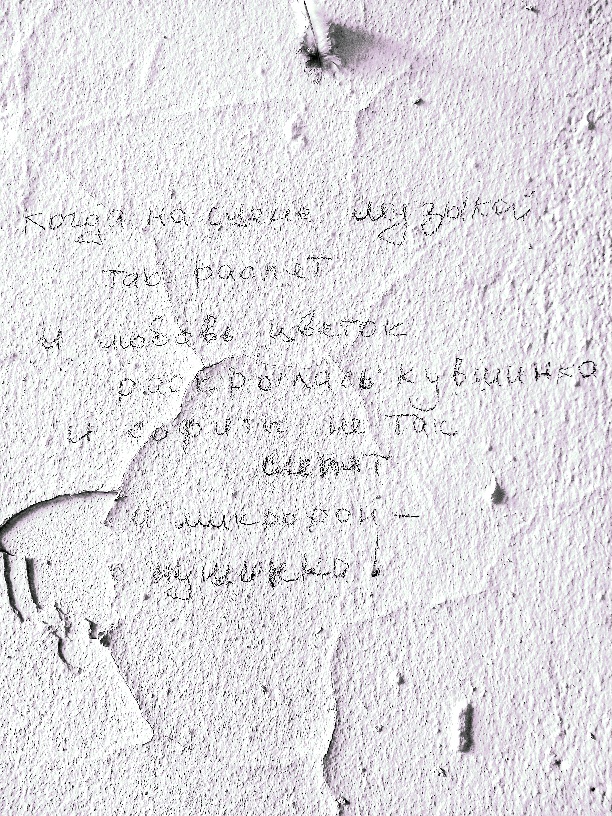 когда на сцене музыкой
так распят
и любовь цветок
раскрылась кувшинка
и софиты не так
слепят
и микрофон –
пушинка!